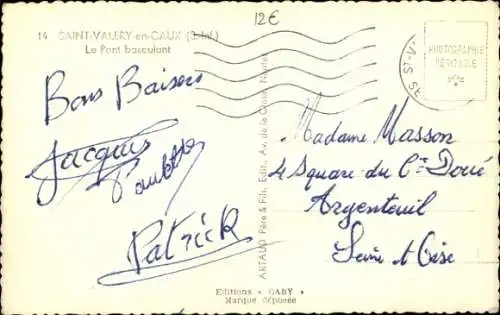 12€
14 SAINT-VALERY-en-CAUX (S.-Inf.)
Le Pont basculant
PHOTOGRAPHIE
VÉRITABLE
ST-V
Bons Baisers
Jacques
Paulette
Patrick
Madame Masson
4 Square du Cte Doué
Argenteuil
Seine et Oise
ARTAUD Père & Fils, Édit., Av. de la Close, Nantes
Editions "GABY"
Marque déposée